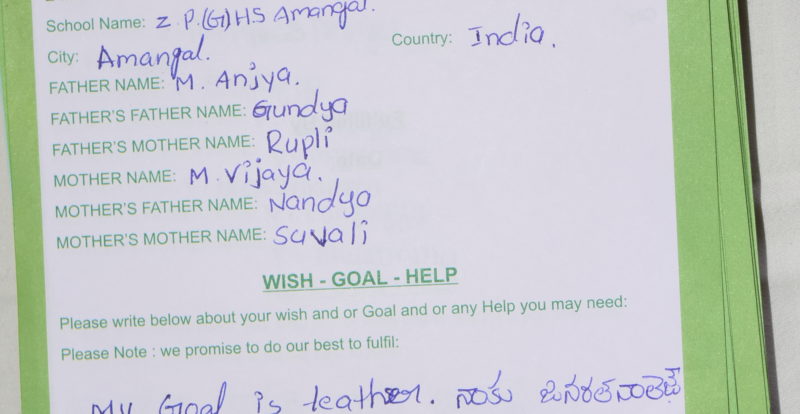 School Name: Z.P.(G)HS Amangal.
City: Amangal. Country: India.
FATHER NAME: M. Anjya.
FATHER'S FATHER NAME: Gundya
FATHER'S MOTHER NAME: Rupli
MOTHER NAME: M. Vijaya.
MOTHER'S FATHER NAME: Nandya
MOTHER'S MOTHER NAME: Suvali
WISH - GOAL - HELP
Please write below about your wish and or Goal and or any Help you may need:
Please Note : we promise to do our best to fulfil:
My Goal is teather. నాకు